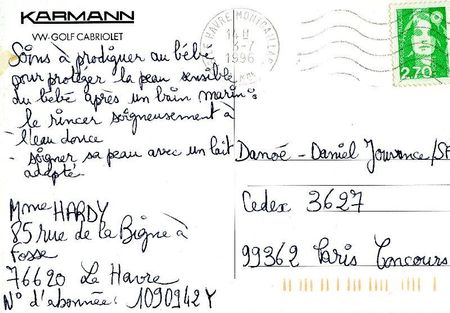 KARMANN
VW-GOLF CABRIOLET
Soins à prodiguer au bébé
pour protéger la peau sensible
du bébé après un bain marin :
le rincer soigneusement à
l'eau douce
- soigner sa peau avec un lait
adapté
Mme HARDY
85 rue de la Bigne à
Fosse
76620 Le Havre
N° d'abonnée : 1090942Y
LE HAVRE
3-7
1996
2,70
Danoé - Daniel Jouvance/SF
Cedex 3627
99362 Paris Concours